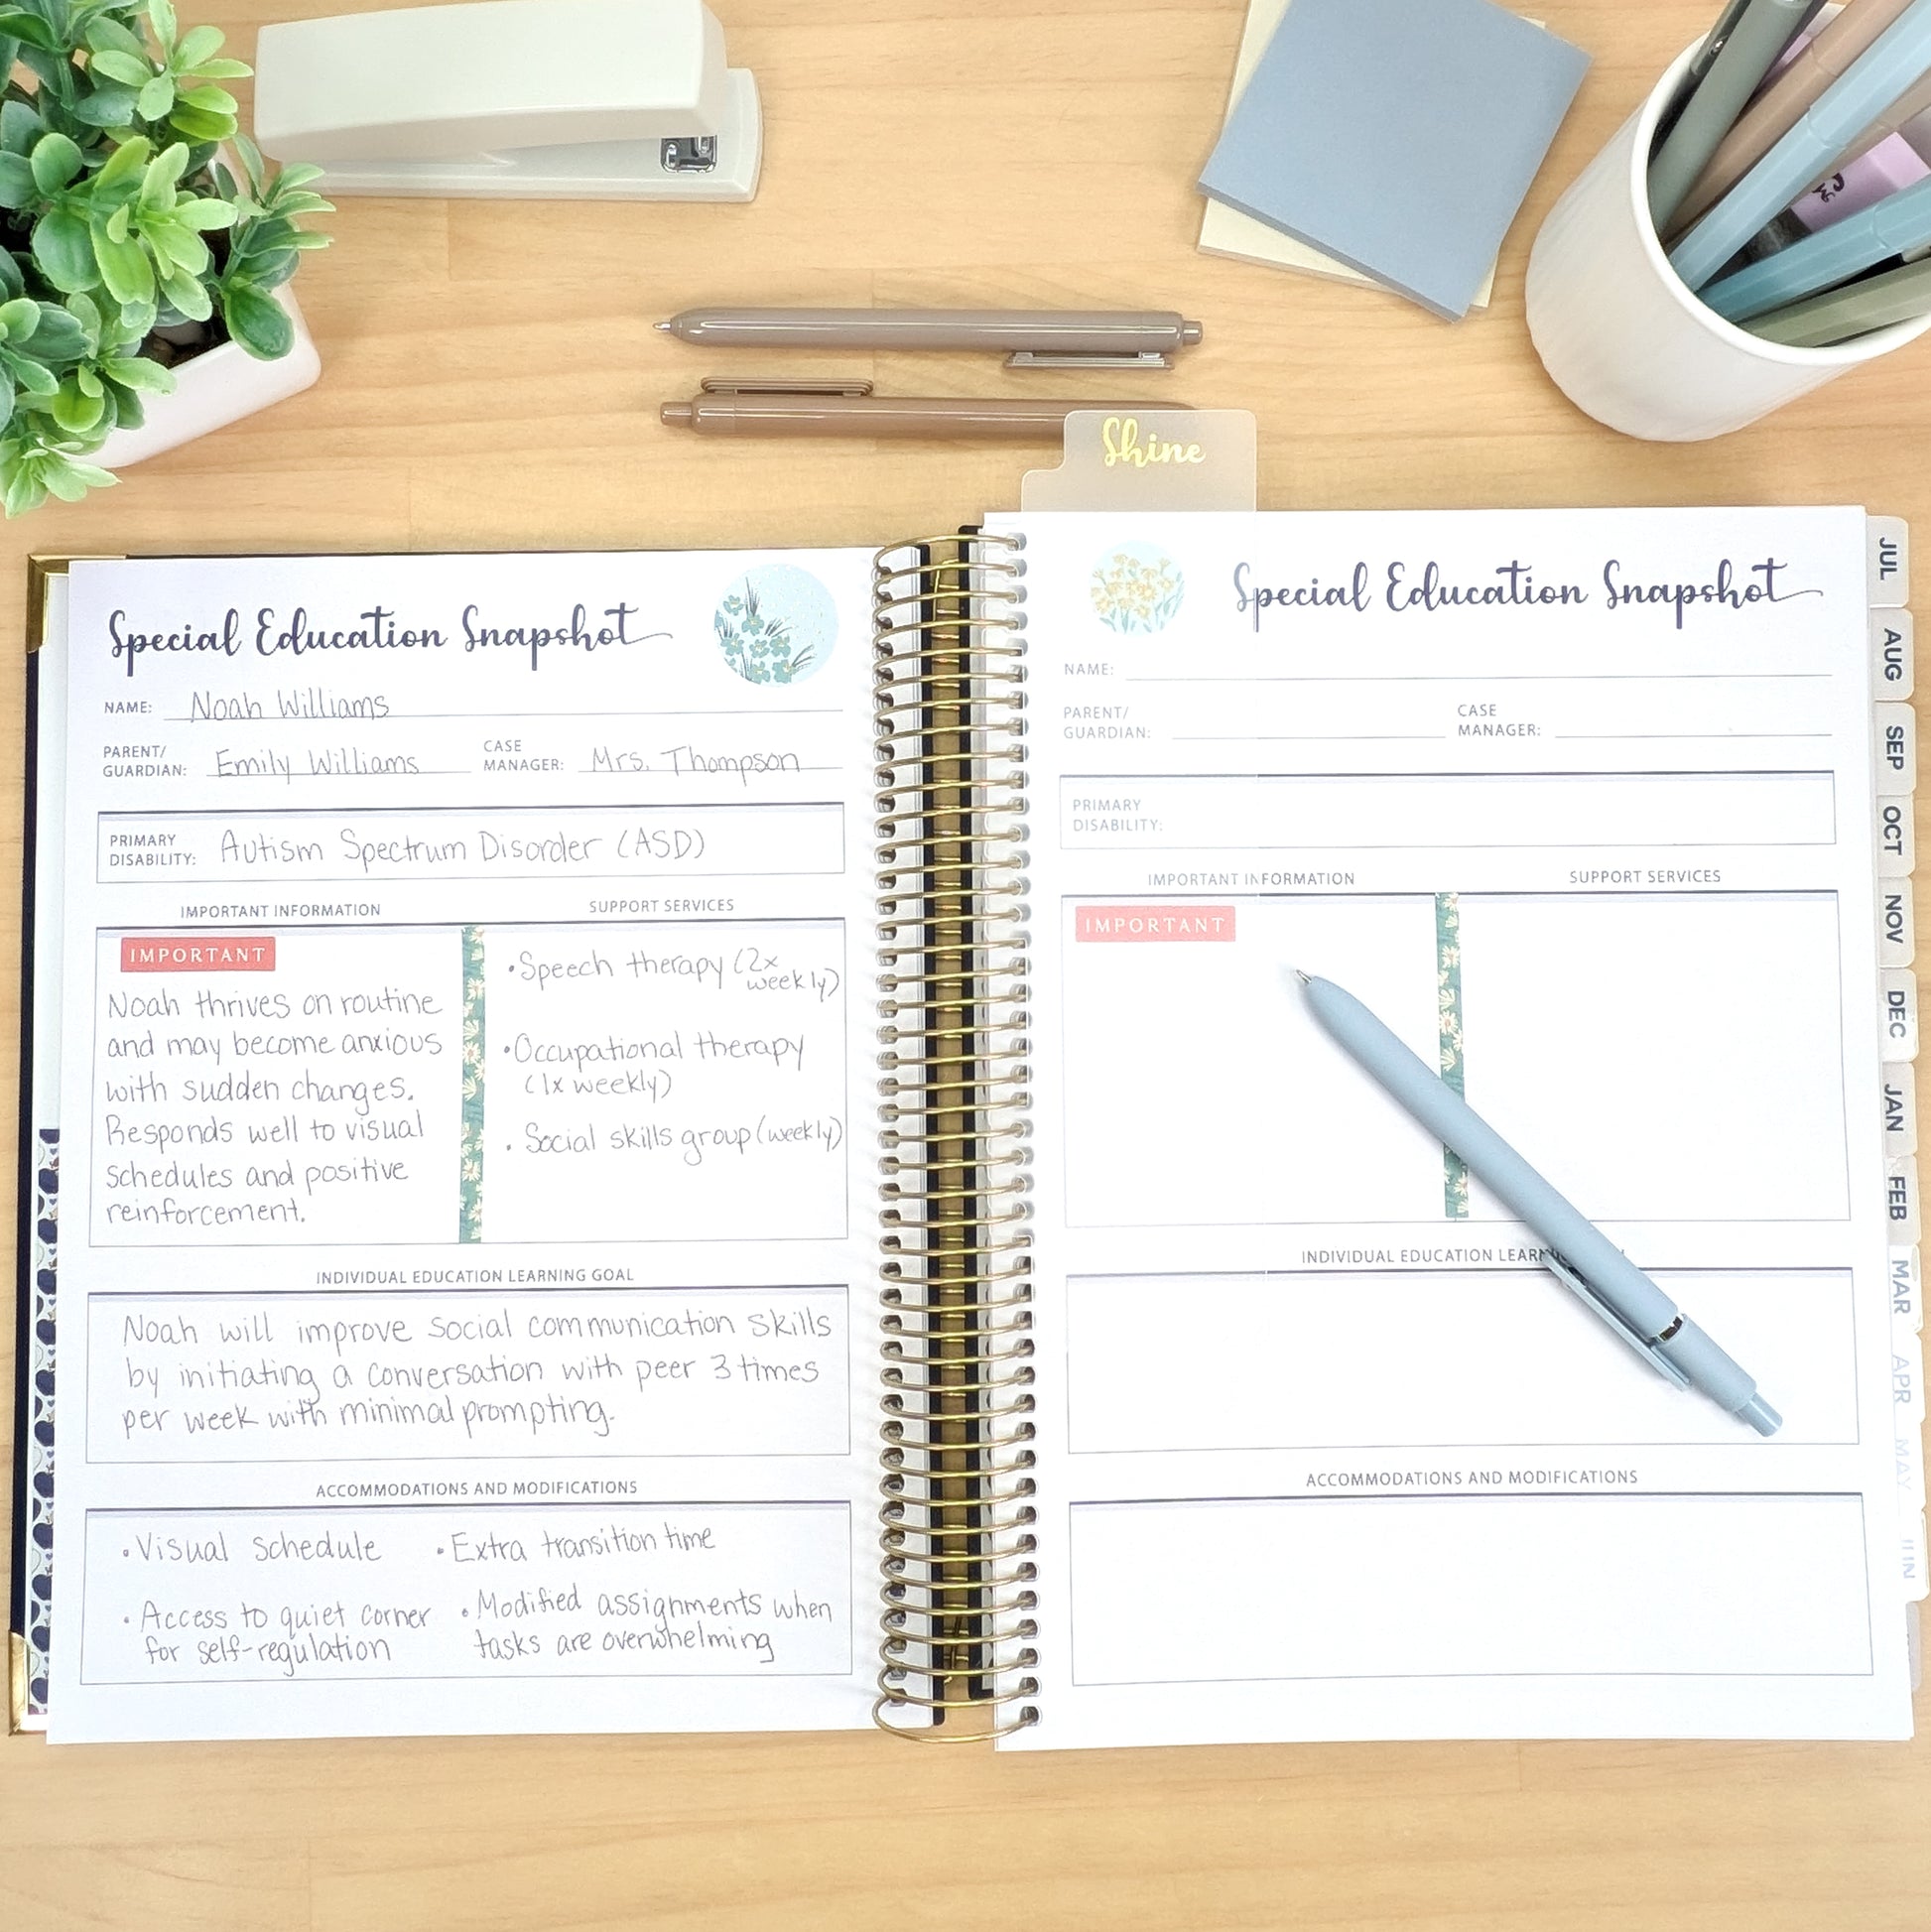 Shine
Special Education Snapshot
NAME: Noah Williams
PARENT/
GUARDIAN: Emily Williams
CASE
MANAGER: Mrs. Thompson
PRIMARY
DISABILITY: Autism Spectrum Disorder (ASD)
IMPORTANT INFORMATION
IMPORTANT
Noah thrives on routine
and may become anxious
with sudden changes.
Responds well to visual
schedules and positive
reinforcement.
SUPPORT SERVICES
•Speech therapy (2x
weekly)
•Occupational therapy
(1x weekly)
• Social skills group (weekly)
INDIVIDUAL EDUCATION LEARNING GOAL
Noah will improve social communication skills
by initiating a conversation with peer 3 times
per week with minimal prompting.
ACCOMMODATIONS AND MODIFICATIONS
• Visual schedule
• Extra transition time
• Access to quiet corner
for self-regulation
• Modified assignments when
tasks are overwhelming
Special Education Snapshot
NAME:
PARENT/
GUARDIAN:
CASE
MANAGER:
PRIMARY
DISABILITY:
IMPORTANT INFORMATION
IMPORTANT
SUPPORT SERVICES
INDIVIDUAL EDUCATION
ACCOMMODATIONS AND MODIFICATIONS
JUL
AUG
SEP
OCT
NOV
DEC
JAN
FEB
MAR
APR
MAY
JUN